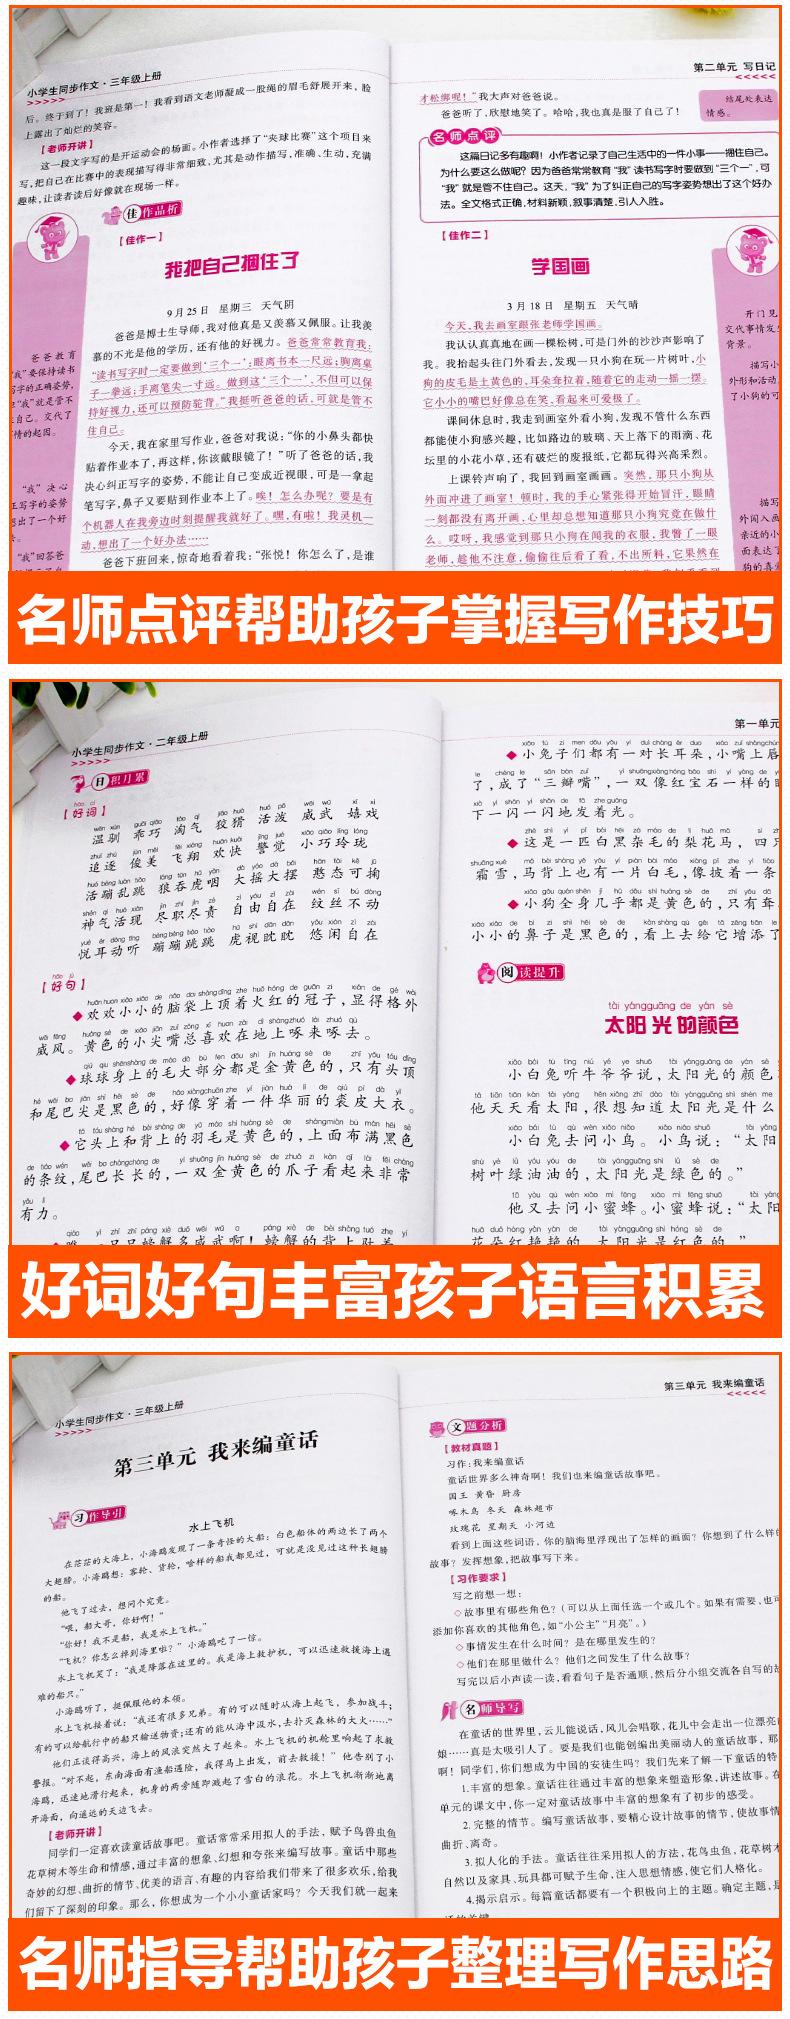 小学生同步作文·三年级上册
后。终于到了！我班是第一！我看到语文老师凝成一股绳的眉毛舒展开来，脸
上露出了灿烂的笑容。
【老师开讲】
这一段文字写的是开运动会的场面。小作者选择了“夹球比赛”这个项目来
写，把自己在比赛中的表现描写得非常细致，尤其是动作描写，准确、生动，充满
趣味，让读者读后好像就在现场一样。
佳作品析
【佳作一】
我把自己捆住了
9月25日 星期三 天气阴
爸爸是博士生导师，我对他真是又羡慕又佩服。让我羡
慕的不光是他的学历，还有他的好视力。爸爸常常教育我：
“读书写字时一定要做到‘三个一’：眼离书本一尺远；胸离桌
子一拳远；手离笔尖一寸远。做到这‘三个一’，不但可以保
持好视力，还可以预防驼背。”我挺听爸爸的话，可就是管不
住自己。
今天，我在家里写作业，爸爸对我说：“你的小鼻头都快
贴着作业本了，再这样，你该戴眼镜了！”听了爸爸的话，我
决心纠正写字的姿势，不能让自己变成近视眼，可是一拿起
笔写字，鼻子又要贴到作业本上了。唉！怎么办呢？要是有
个机器人在我旁边时刻提醒我就好了。嘿，有啦！我灵机一
动，想出了一个好办法……
爸爸下班回来，惊奇地看着我：“张悦！你怎么了，是谁
爸爸教育
“我”要保持读书
写字的正确姿势，
“我”就是管不
住自己。交代了
事情的起因。
“我”决心
正写字的姿势
想出了一个好
“我”回答爸
第二单元 写日记
才松绑呢！”我大声对爸爸说。
爸爸听了，欣慰地笑了。哈哈，我也真是服了自己了！
结尾处表达
情感。
名师点评
这篇日记多有趣啊！小作者记录了自己生活中的一件小事——捆住自己。
为什么要这么做呢？因为爸爸常教育“我”读书写字时要做到“三个一”，可
“我”就是管不住自己。这天，“我”为了纠正自己的写字姿势想出了这个好办
法。全文格式正确，材料新颖，叙事清楚，引人入胜。
【佳作二】
学国画
3月18日 星期五 天气晴
今天，我去画室跟张老师学国画。
我认认真真地在画一棵松树，可是门外的沙沙声影响了
我。我抬起头往门外看去，发现一只小狗在玩一片树叶，小
狗的皮毛是土黄色的，耳朵耷拉着，随着它的走动一摇一摆。
它小小的嘴巴好像总在笑，看起来可爱极了。
课间休息时，我走到画室外看小狗，发现不管什么东西
都能使小狗感兴趣，比如路边的玻璃、天上落下的雨滴、花
坛里的小花小草，还有破烂的废报纸，它都玩得兴高采烈。
上课铃声响了，我回到画室画画。突然，那只小狗从
外面冲进了画室！顿时，我的手心紧张得开始冒汗，眼睛
一刻都没有离开画，心里却总想知道那只小狗究竟在做什
么。哎呀，我感觉到那只小狗在闻我的衣服，我瞥了一眼
老师，趁他不注意，偷偷往后看了看，不出所料，它果然在
开门见
交代事情发生
背景。
描写小
外形和活动。
了小狗的可
描写
外闯入画
亲近的小
面表达了
狗的喜爱
名师点评帮助孩子掌握写作技巧
小学生同步作文·二年级上册
日积月累
hǎo cí
【好词】
温驯 乖巧 淘气 狡猾 活泼 威武 嬉戏
追逐 俊美 飞翔 欢快 警觉 小巧玲珑
活蹦乱跳 狼吞虎咽 大摇大摆 憨态可掬
神气活现 尽职尽责 自由自在 纹丝不动
悦耳动听 蹦蹦跳跳 虎视眈眈 悠闲自在
hǎo jù
【好句】
◆欢欢小小的脑袋上顶着火红的冠子，显得格外
威风。黄色的小尖嘴总喜欢在地上啄来啄去。
◆球球身上的毛大部分都是金黄色的，只有头顶
和尾巴尖是黑色的，好像穿着一件华丽的裘皮大衣。
◆它头上和背上的羽毛是黄色的，上面布满黑色
的条纹，尾巴长长的，一双金黄色的爪子看起来非常
有力。
第一单元
◆小兔子们都有一对长耳朵，小嘴上唇
了，成了“三瓣嘴”，一双像红宝石一样的
下一闪一闪地发着光。
◆这是一匹白黑杂毛的梨花马，四只
霜雪，马背上也有一片白毛，像披着一条
◆小狗全身几乎都是黄色的，只有耷
小小的鼻子是黑色的，看上去给它增添了
阅读提升
tài yángguāng de yán sè
太阳光的颜色
小白兔听牛爷爷说，太阳光的颜色
他天天看太阳，很想知道太阳光是什么
小白兔去问小鸟。小鸟说：“太阳
树叶绿油油的，太阳光是绿色的。”
他又去问小蜜蜂。小蜜蜂说：“太阳
花朵红艳艳的，太阳光是红色的。”
好词好句丰富孩子语言积累
小学生同步作文·三年级上册
第三单元 我来编童话
习作导引
水上飞机
在茫茫的大海上，小海鸥发现了一条奇怪的大船：白色船体的两边长了两个
大翅膀。小海鸥想：客轮、货轮，啥样的船我都见过，可就是没见过这种长翅膀
的船。
他飞了过去，想问个究竟。
“喂，船大哥，你好啊！”
“你好！我不是船，我是水上飞机。”
“飞机？你怎么掉到海里啦？”小海鸥吃了一惊。
水上飞机笑了：“我是降落在这里的。我是海上救护机，可以迅速救援海上遇
难的船只。”
小海鸥听了，挺佩服他的本领。
水上飞机接着说：“我还有很多兄弟。有的可以随时从海上起飞，参加战斗；
有的可以给航行中的船只输送物资；还有的能从海中汲水，去扑灭森林的大火……”
他们正谈得高兴，海上的风浪突然大了起来。水上飞机的机舱里响起了求救
警报。“对不起，东南海面有渔船遇险，我得马上出发，前去救援！”他告别了小
海鸥，迅速地滑行起来，机身的两旁随即溅起了雪白的浪花。水上飞机渐渐地离
开海面，向遥远的天边飞去。
【老师开讲】
同学们一定喜欢读童话故事吧。童话常常采用拟人的手法，赋予鸟兽虫鱼
花草树木等生命和情感，通过丰富的想象、幻想和夸张来编写故事。童话中那些
奇妙的幻想、曲折的情节、优美的语言、有趣的内容给我们带来了很多欢乐，给我
们留下了深刻的印象。那么，你想成为一个小小童话家吗？今天我们就一起来
第三单元 我来编童话
文题分析
【教材真题】
习作：我来编童话
童话世界多么神奇啊！我们也来编童话故事吧。
国王 黄昏 厨房
啄木鸟 冬天 森林超市
玫瑰花 星期天 小河边
看到上面这些词语，你的脑海里浮现出了怎样的画面？你想到了什么样的
故事？发挥想象，把故事写下来。
【习作要求】
写之前想一想：
◇故事里有哪些角色？（可以从上面任选一个或几个。如果有需要，也可
添加你喜欢的其他角色，如“小公主”“月亮”。）
◇事情发生在什么时间？是在哪里发生的？
◇他们在那里做什么？他们之间发生了什么故事？
写完以后小声读一读，看看句子是否通顺，然后分小组交流各自写的故
名师导写
在童话的世界里，云儿能说话，风儿会唱歌，花儿中会走出一位漂亮
娘……真是太吸引人了。要是我们也能创编出美丽动人的童话故事，那
啊！同学们，你们想成为中国的安徒生吗？我们先来了解一下童话的特
1.丰富的想象。童话往往通过丰富的想象来塑造形象，讲述故事。在
单元的课文中，你一定对童话故事中丰富的想象有了初步的感受。
2.完整的情节。编写童话故事，要精心设计故事的情节，使故事情
曲折、离奇。
3.拟人化的手法。童话往往采用拟人的方法，花鸟虫鱼，花草树木
自然以及家具、玩具都可赋予生命，注入思想感情，使它们人格化。
4.揭示启示。每篇童话都要有一个积极向上的主题。确定主题，是
名师指导帮助孩子整理写作思路